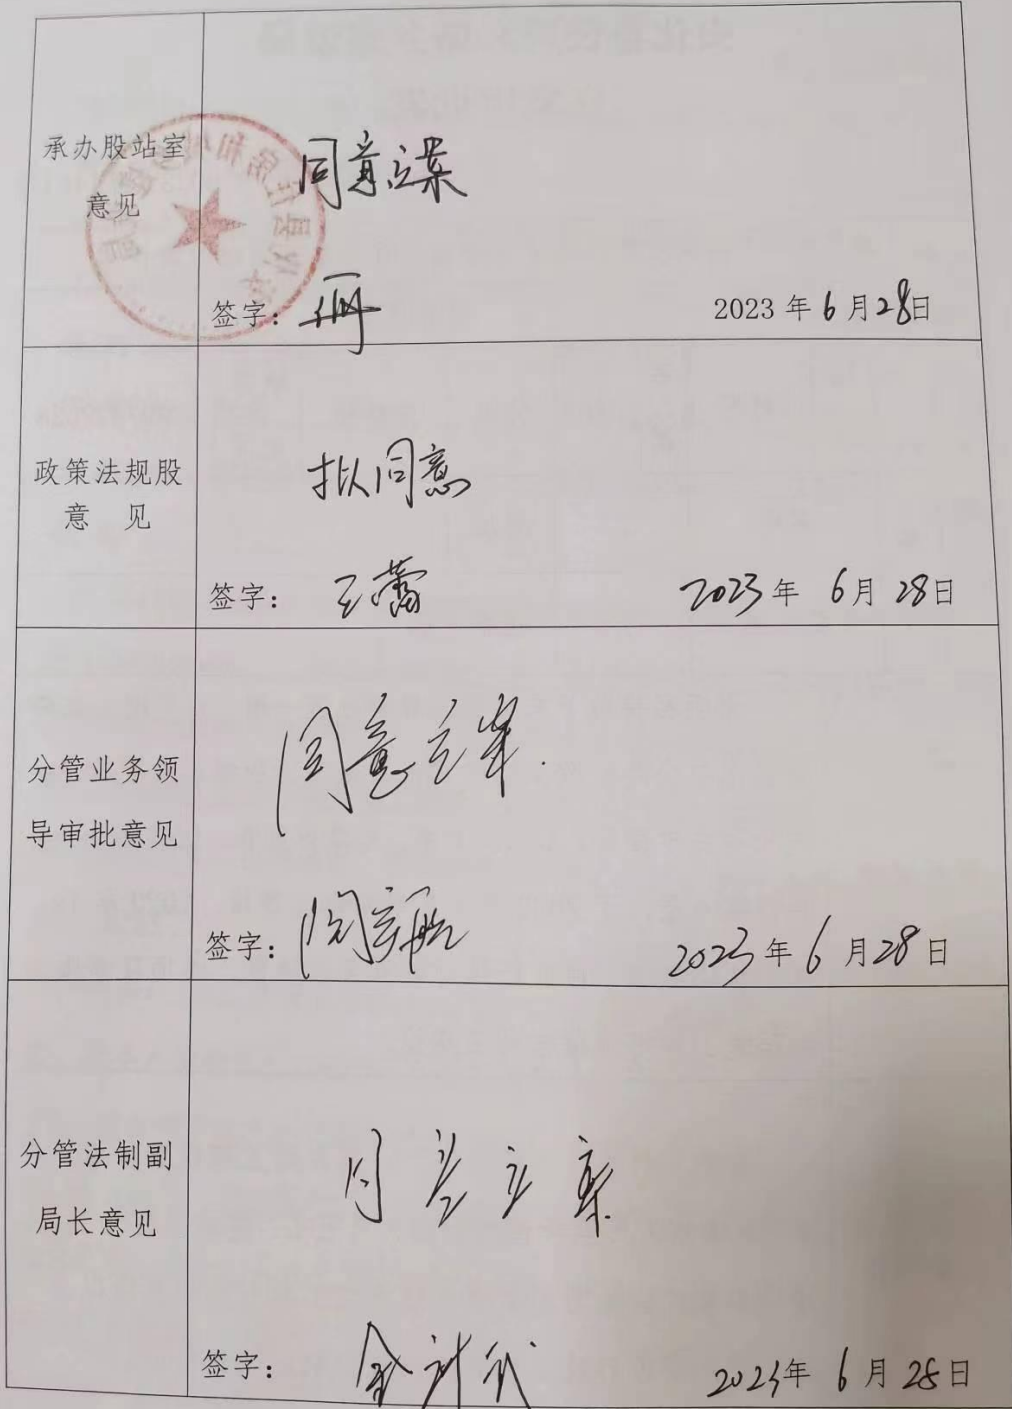 承办股站室
意见
同意立案
签字：
2023年6月28日
政策法规股
意 见
拟同意
签字：王蕾
2023年 6月 28日
分管业务领
导审批意见
同意立案.
签字：
2023年6月28日
分管法制副
局长意见
同意立案
签字：
2023年 6月 28日